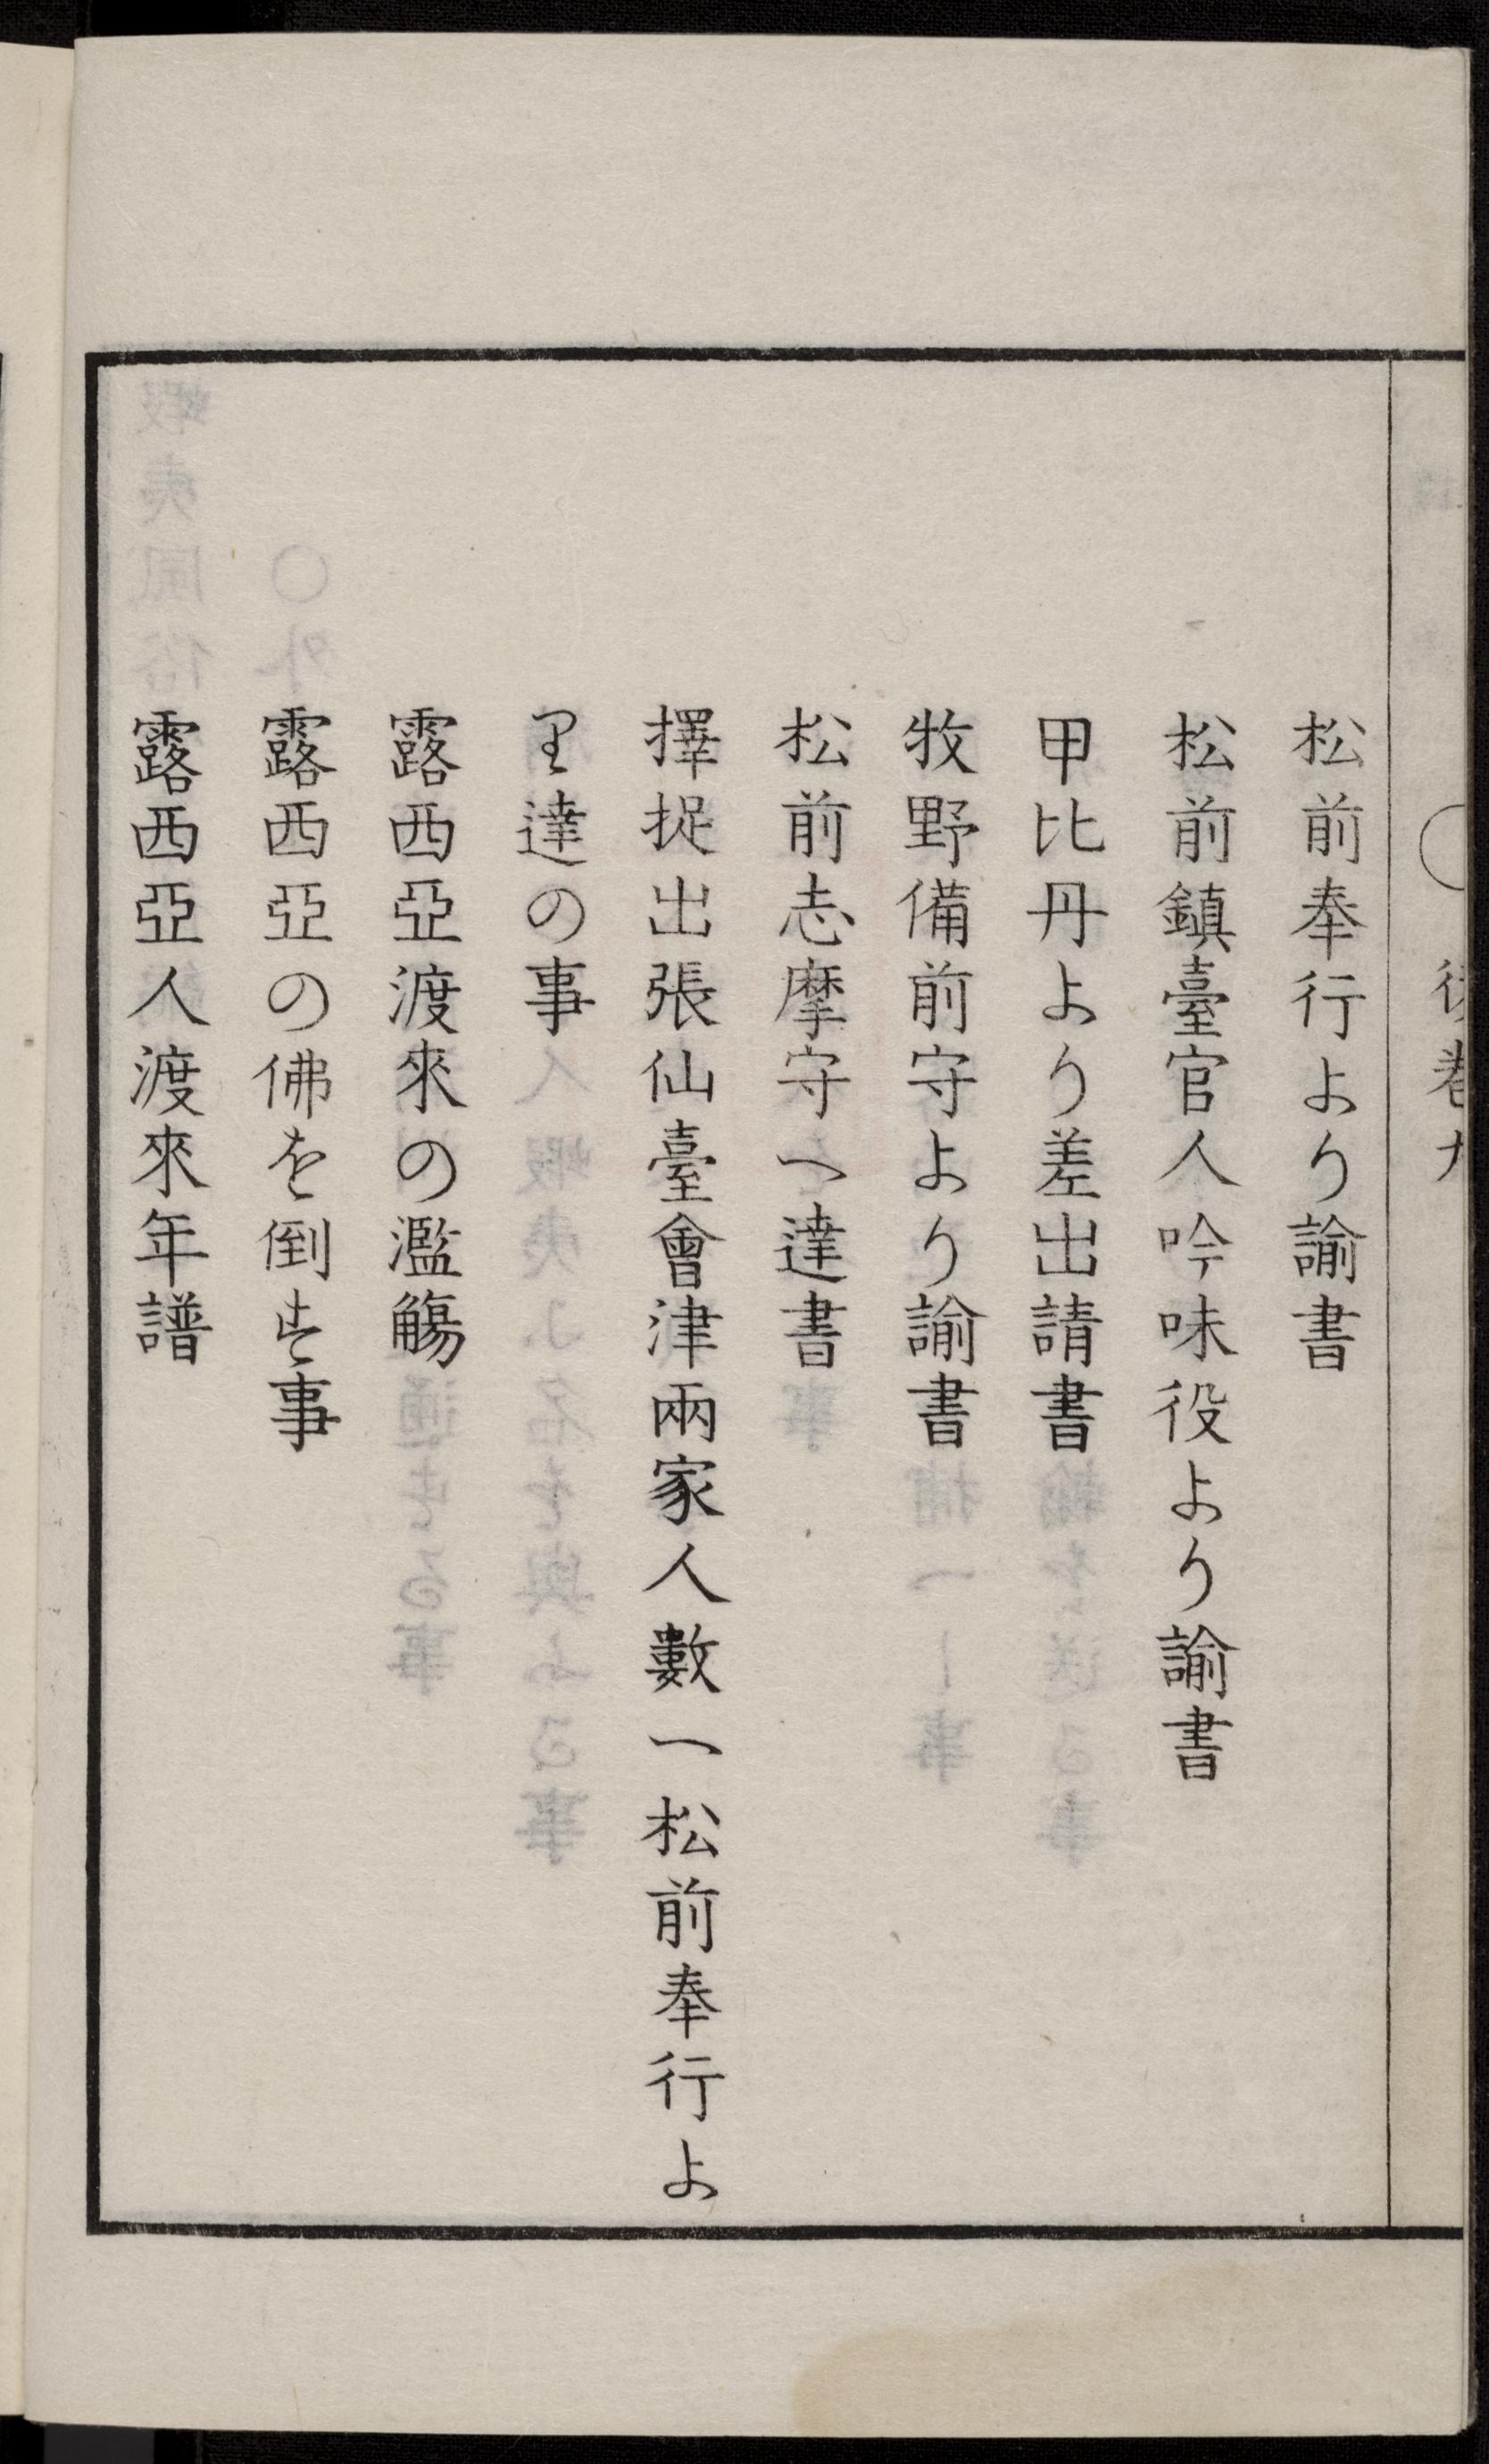 後巻九
松前奉行より諭書
松前鎮臺官人吟味役より諭書
甲比丹より差出請書
牧野備前守より諭書
松前志摩守へ達書
擇捉出張仙臺會津兩家人數へ松前奉行よ
り達の事
露西亞渡來の濫觴
露西亞の佛を倒す事
露西亞人渡來年譜